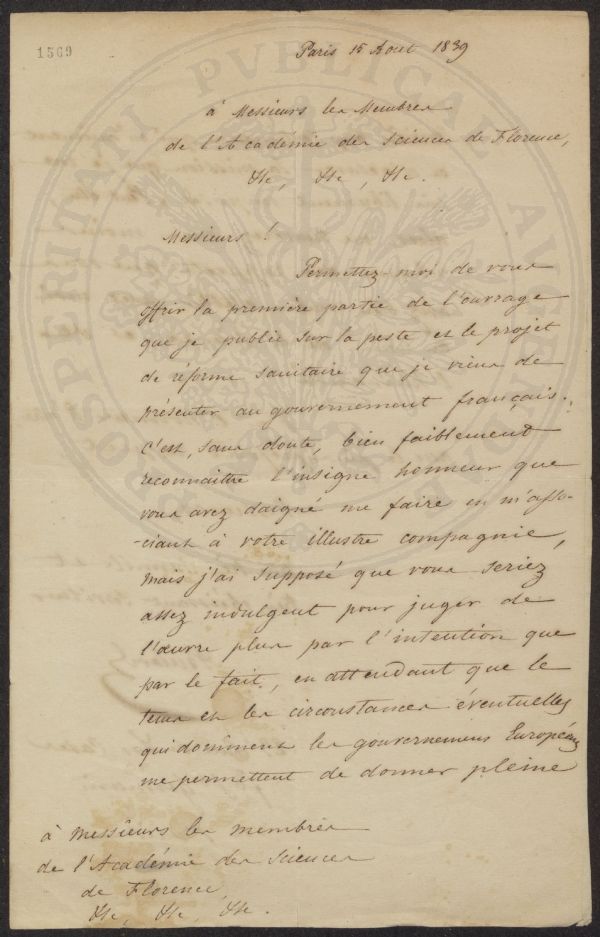 1569
Paris 15 Aout 1839
à Messieurs les Membres
de l'Académie des Sciences de Florence,
&c, &c, &c.
Messieurs !
Permettez-moi de vous
offrir la première partie de l'ouvrage
que je publie sur la peste et le projet
de réforme sanitaire que je viens de
présenter au gouvernement français.
C'est, sans doute, bien faiblement
reconnaitre l'insigne honneur que
vous avez daigné me faire en m'asso-
-ciant à votre illustre compagnie,
mais j'ai supposé que vous seriez
assez indulgent pour juger de
l'œuvre plus par l'intention que
par le fait, en attendant que le
tems et les circonstances éventuelles
qui dominent les gouvernemens Européens
me permettent de donner pleine
à Messieurs les membres
de l'Académie des Sciences
de Florence,
&c, &c, &c.
PROSPERITATI PVBLICAE AVGENDAE